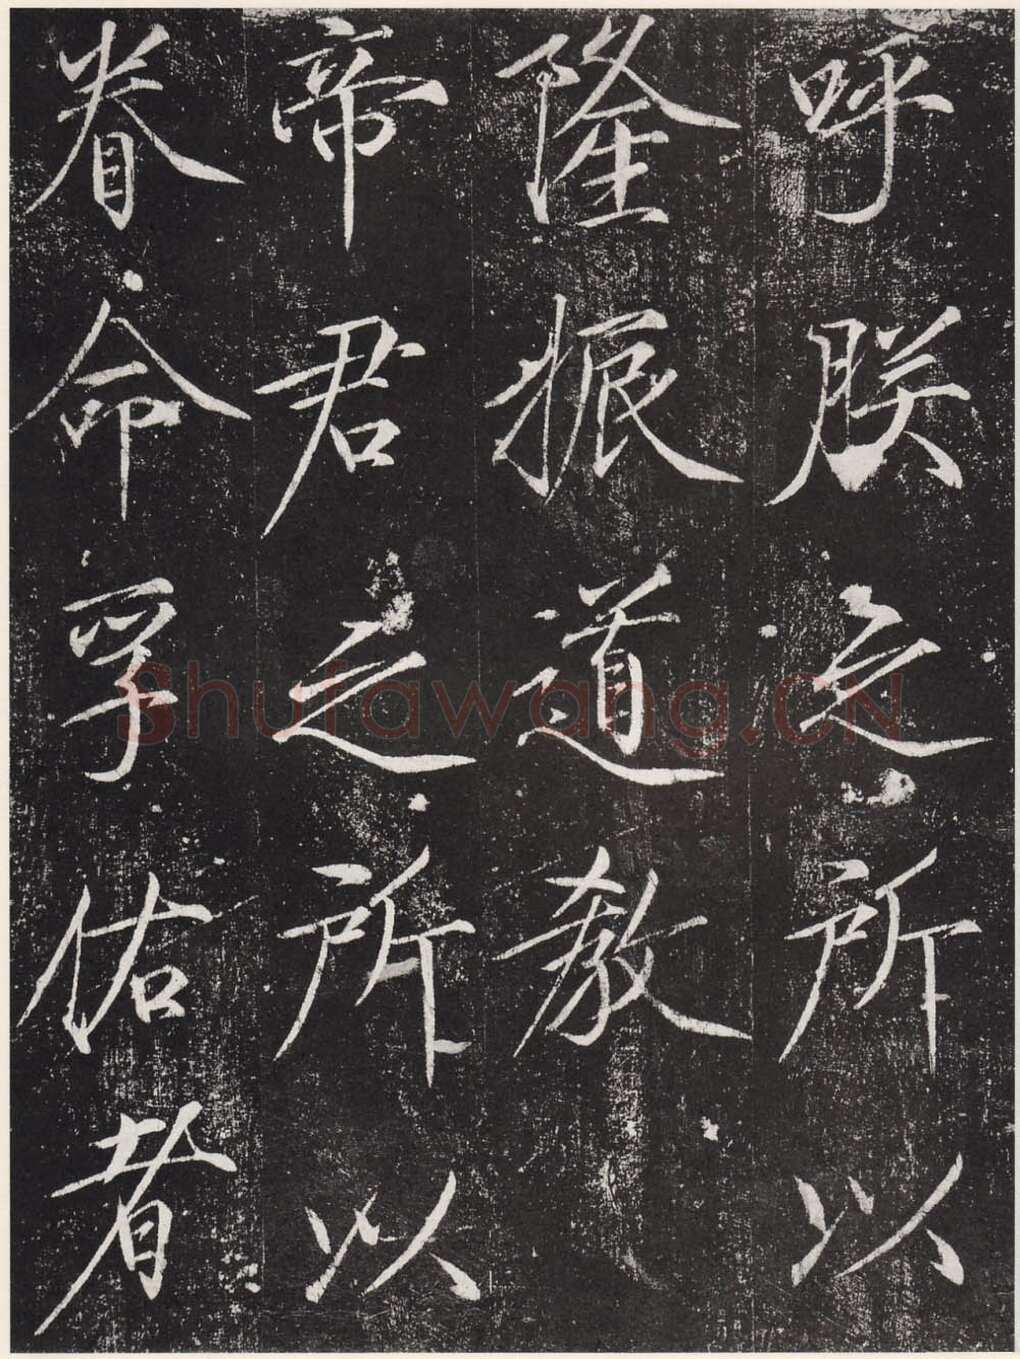 呼朕之所以
隆振道教
帝君之所以
眷命孚佑者
Shufawang.CN